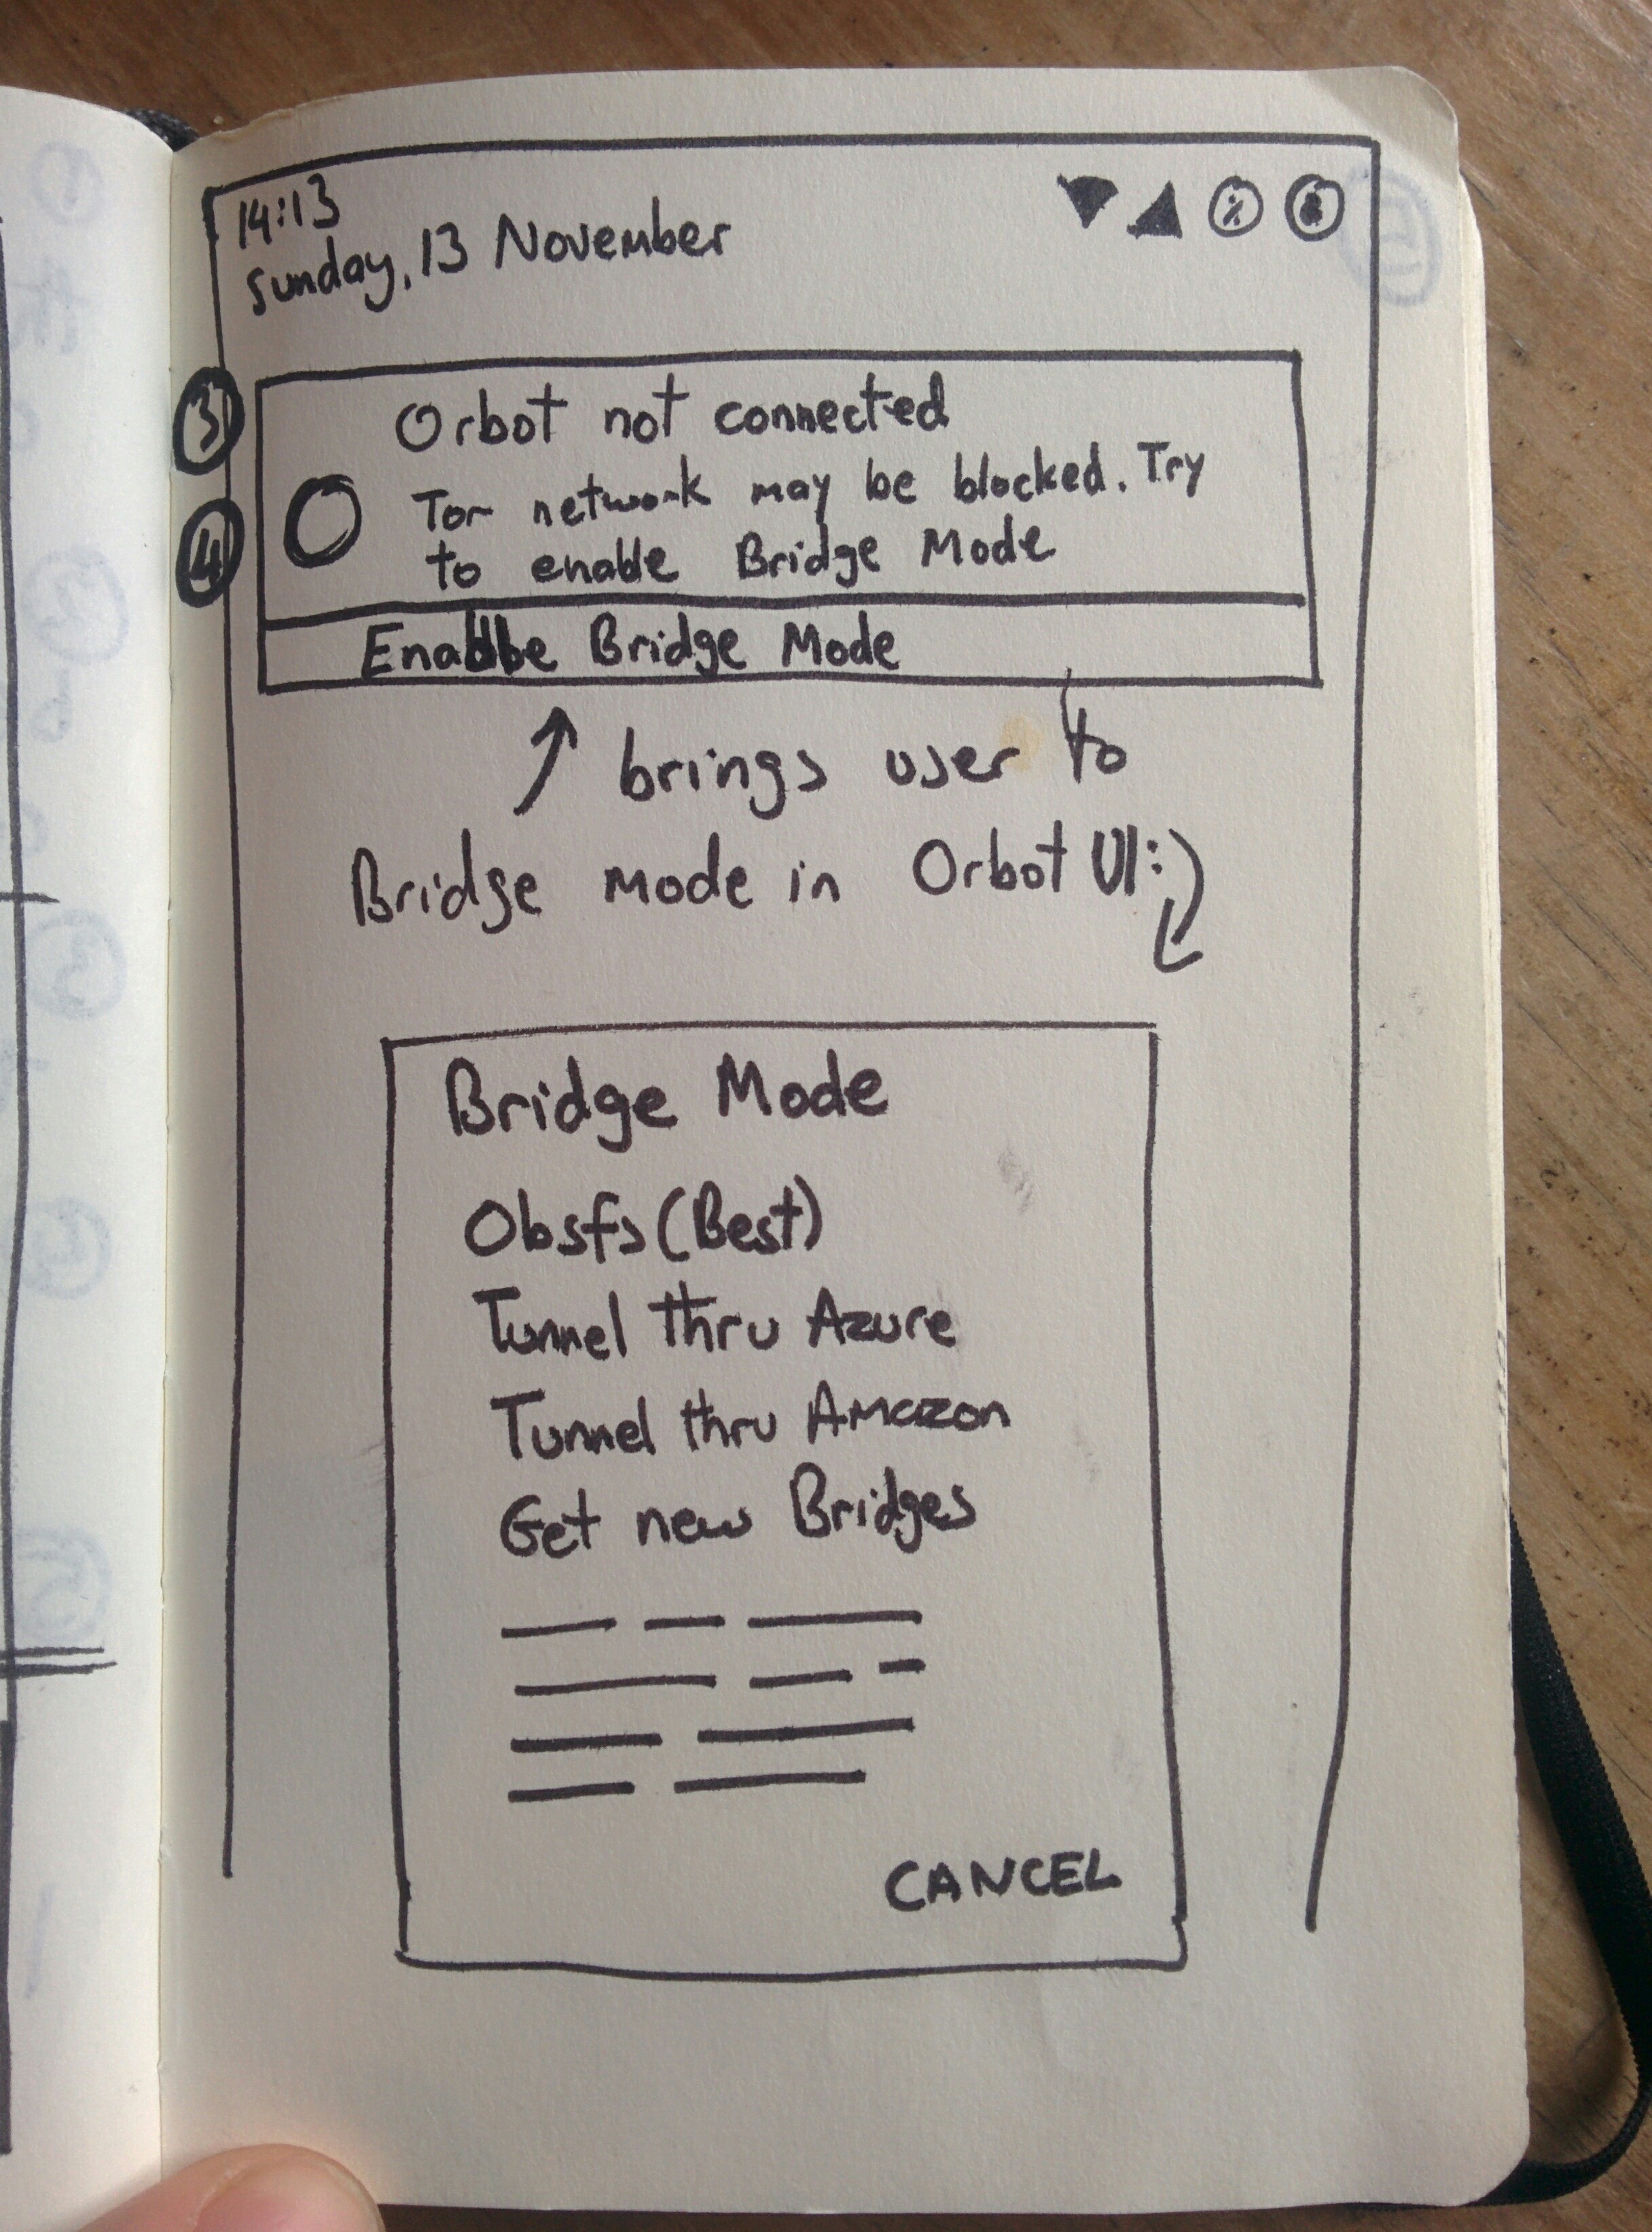 14:13
Sunday, 13 November
3
Orbot not connected
Tor network may be blocked. Try
4
to enable Bridge Mode
Enable Bridge Mode
brings user to
Bridge mode in Orbot UI:
Bridge Mode
Obsfs (Best)
Tunnel thru Azure
Tunnel thru Amazon
Get new Bridges
CANCEL